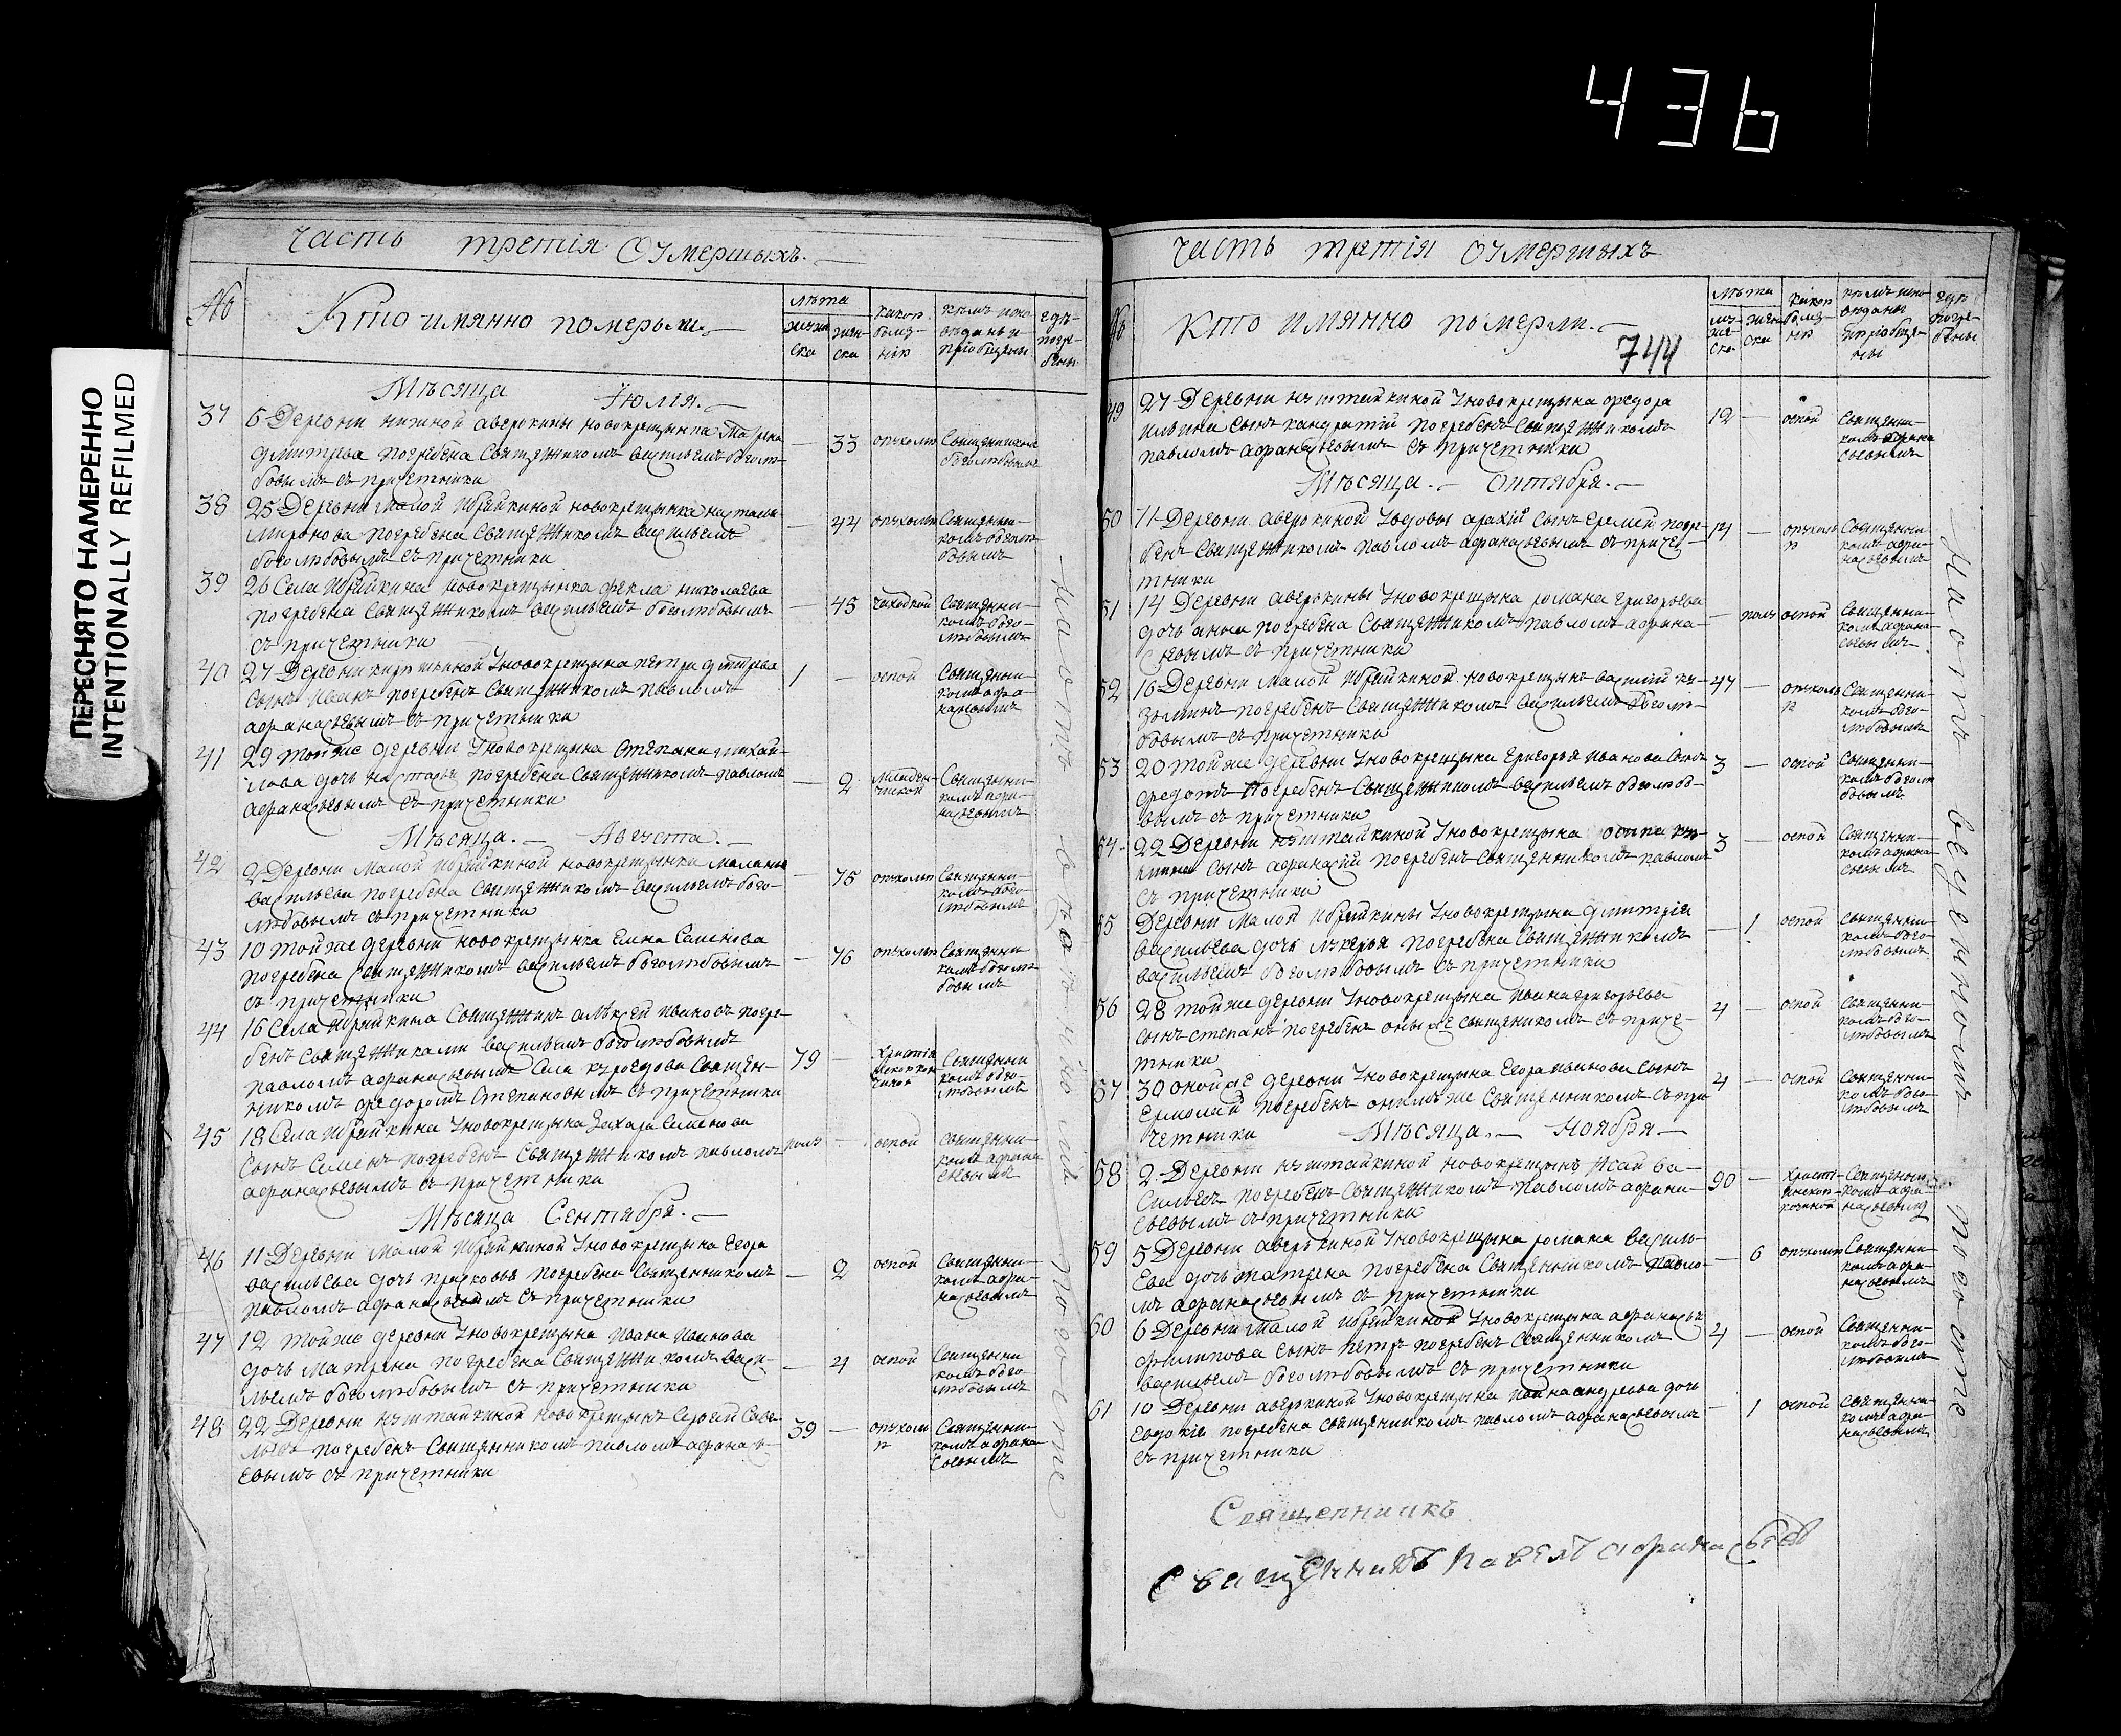 436
ПЕРЕСНЯТО НАМЕРЕННО
INTENTIONALLY REFILMED
Часть третія Оумершыхъ.
№ Кто имянно померьли. лѣта
мужеска женска какою болезнію кѣмъ исповѣданы и пріобщены гдѣ погребены
Мѣсяца Июлія.
37 6 Деревни нижной аверкины новокрещынка матрена
дмитрева погребена Священникомъ васильемъ боголю-
бовымъ съ причетники
33 опухолью Священникомъ боголюбовымъ
38 25 Деревни малой Ибряйкиной новокрещынка настасья
миронова погребена Священникомъ васильемъ
боголюбовымъ съ причетники
44 опухолью Священни-
комъ боголю-
бовымъ
39 26 Села Ибряйкина новокрещынка фекла николаева
погребена Священникомъ васильемъ боголюбовымъ
съ причетники
45 чахоткой Священни-
комъ бого-
любовымъ
40 27 Деревни киртикиной Уновокрещына петра дмитрева
сынъ Иванъ погребенъ Священникомъ павломъ
афанасьевымъ съ причетники
1 оспой Священни-
комъ афа-
насьевымъ
41 29 тойже деревни Уновокрещына Степана михай-
лова дочь настасья погребена Священникомъ павломъ
афанасьевымъ съ причетники
2 младен-
ческой Священни-
комъ афа-
насьевымъ
Мѣсяца. Августа.
42 2 Деревни Малой Ибряйкиной новокрещынка маланья
васильева погребена Священникомъ васильемъ бого-
любовымъ съ причетники
75 опухолью Священни-
комъ бого-
любовымъ
43 10 тойже деревни новокрещынка Елена Семенова
погребена Священникомъ васильемъ боголюбовымъ
съ причетники
76 опухолью Священни-
комъ боголю-
бовымъ
44 16 Села Ибряйкина Священникъ алѣксей Ивановъ погре-
бенъ священниками васильемъ боголюбовымъ
павломъ афанасьевымъ Села Священ-
никомъ федоромъ Степановымъ съ причетники
79 Христіа
нскою кон
чиною Священни
комъ бого-
любовымъ
45 18 Села Ибряйкина Уновокрещына Захара Семенова
сынъ Семенъ погребенъ Священникомъ павломъ
афанасьевымъ съ причетники
полъ оспой священни-
комъ афана-
сьевымъ
Мѣсяца Сентября.
46 11 Деревни Малой Ибряйкиной Уновокрещына Егора
васильева дочь прасковья погребена Священникомъ
павломъ афанасьевымъ съ причетники
2 оспой Священни-
комъ афа-
насьевымъ
47 12 тойже деревни Уновокрещына Ивана Иванова
дочь матрена погребена Священникомъ васи-
льемъ боголюбовымъ съ причетники
4 оспой Священни
комъ бого-
любовымъ
48 22 Деревни новокрещынъ Сергей Саве-
льевъ погребенъ Священникомъ павломъ афанась-
евымъ съ причетники
39 опухоль
ю Священни-
комъ афана-
сьевымъ
На отведенномъ погосте
Часть третія Оумершыхъ
744
№ Кто имянно померли. лѣта
мужеска женска какою болезнію кѣмъ исповѣданы и пріобщены гдѣ погребены
49 27 Деревни Уновокрещына федора
ильина сынъ кандратій погребенъ Священникомъ
павломъ афанасьевымъ съ причетники
12 оспой Священни-
комъ афана
сьевымъ
Мѣсяца. Октября.
50 11 Деревни аверкиной Увдовы сынъ Еремей погре-
бенъ Священникомъ павломъ афанасьевымъ съ приче-
тники
14 опухоль
ю Священни-
комъ афа-
насьевымъ
51 14 Деревни аверкины Уновокрещына романа Григорьева
дочь анна погребена Священникомъ павломъ афана-
сьевымъ съ причетники
полъ оспой Священни-
комъ афана-
сьевымъ
52 16 Деревни Малой Ибряйкиной новокрещынъ василій ку-
зьминъ погребенъ Священникомъ васильемъ боголю-
бовымъ съ причетники
47 опухоль
ю Священни-
комъ бого-
любовымъ
53 20 тойже деревни Уновокрещына Григорья Иванова сынъ
федотъ погребенъ Священникомъ васильемъ боголюбо-
вымъ съ причетники
3 оспой Священни-
комъ боголю
бовымъ
54 22 Деревни Уновокрещына осипа
сынъ афанасій погребенъ Священникомъ павломъ
съ причетники
3 оспой Священни-
комъ афана-
сьевымъ
55 Деревни Малой Ибряйкины Уновокрещына дмитрія
васильева дочь лукерья погребена Священникомъ
васильемъ боголюбовымъ съ причетники
1 оспой священни-
комъ бого-
любовымъ
56 28 тойже деревни Уновокрещына Ивана григорьева
сынъ степанъ погребенъ онымже священикомъ съ приче-
тники
4 оспой Священни-
комъ бого-
любовымъ
57 30 онойже деревни Уновокрещына Егора иванова сынъ
Ермолай погребенъ онымъже Священникомъ съ при
четники
4 оспой Священни-
комъ бого-
любовымъ
Мѣсяца. Ноября
58 2 Деревни новокрещынъ Исай Ва-
сильевъ погребенъ Священникомъ павломъ афана-
сьевымъ съ причетники
90 Христі-
янскою кон-
чиной Священни
комъ афа-
насьевымъ
59 5 Деревни аверкиной Уновокрещына романа василь-
ева дочь матрена погребена Священникомъ павло-
мъ афанасьевымъ съ причетники
6 опухолью Священни-
комъ афа-
насьевымъ
60 6 Деревни малой ибряйкиной Уновокрещына афанасья
филипова сынъ петръ погребенъ Священникомъ
васильемъ боголюбовымъ съ причетники
4 оспой Священни-
комъ бого-
любовымъ
61 10 Деревни аверкиной Уновокрещына Ивана андреева дочь
Евдокія погребена священникомъ павломъ афанасьевымъ
съ причетники
1 оспой Священни-
комъ афа-
насьевымъ
На отведенномъ погосте
Священникъ
Священникъ Павелъ Афанасьевъ